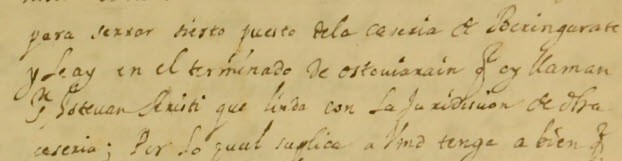 para serrar sierto puesto dela caseria de Beringarate
y Leay en el terminado de ostoviarain q̃ oy llaman
Sn Esteuan Aristi que linda con la Juridision de dha
caseria; Por lo qual suplica a Vmd tenga a bien q̃